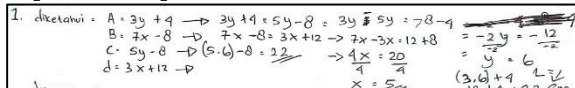 1. diketahui = A = 3y + 4 → 3y + 4 = 5y - 8 = 3y - 5y = -8 - 4
B = 7x - 8 → 7x - 8 = 3x + 12 → 7x - 3x = 12 + 8 = -2y = -12
-2 -2
C = 5y - 8 → (5.6) - 8 = 22 → 4x = 20 = y = 6
4 4
d = 3x + 12 → x = 5 (3.6) + 4